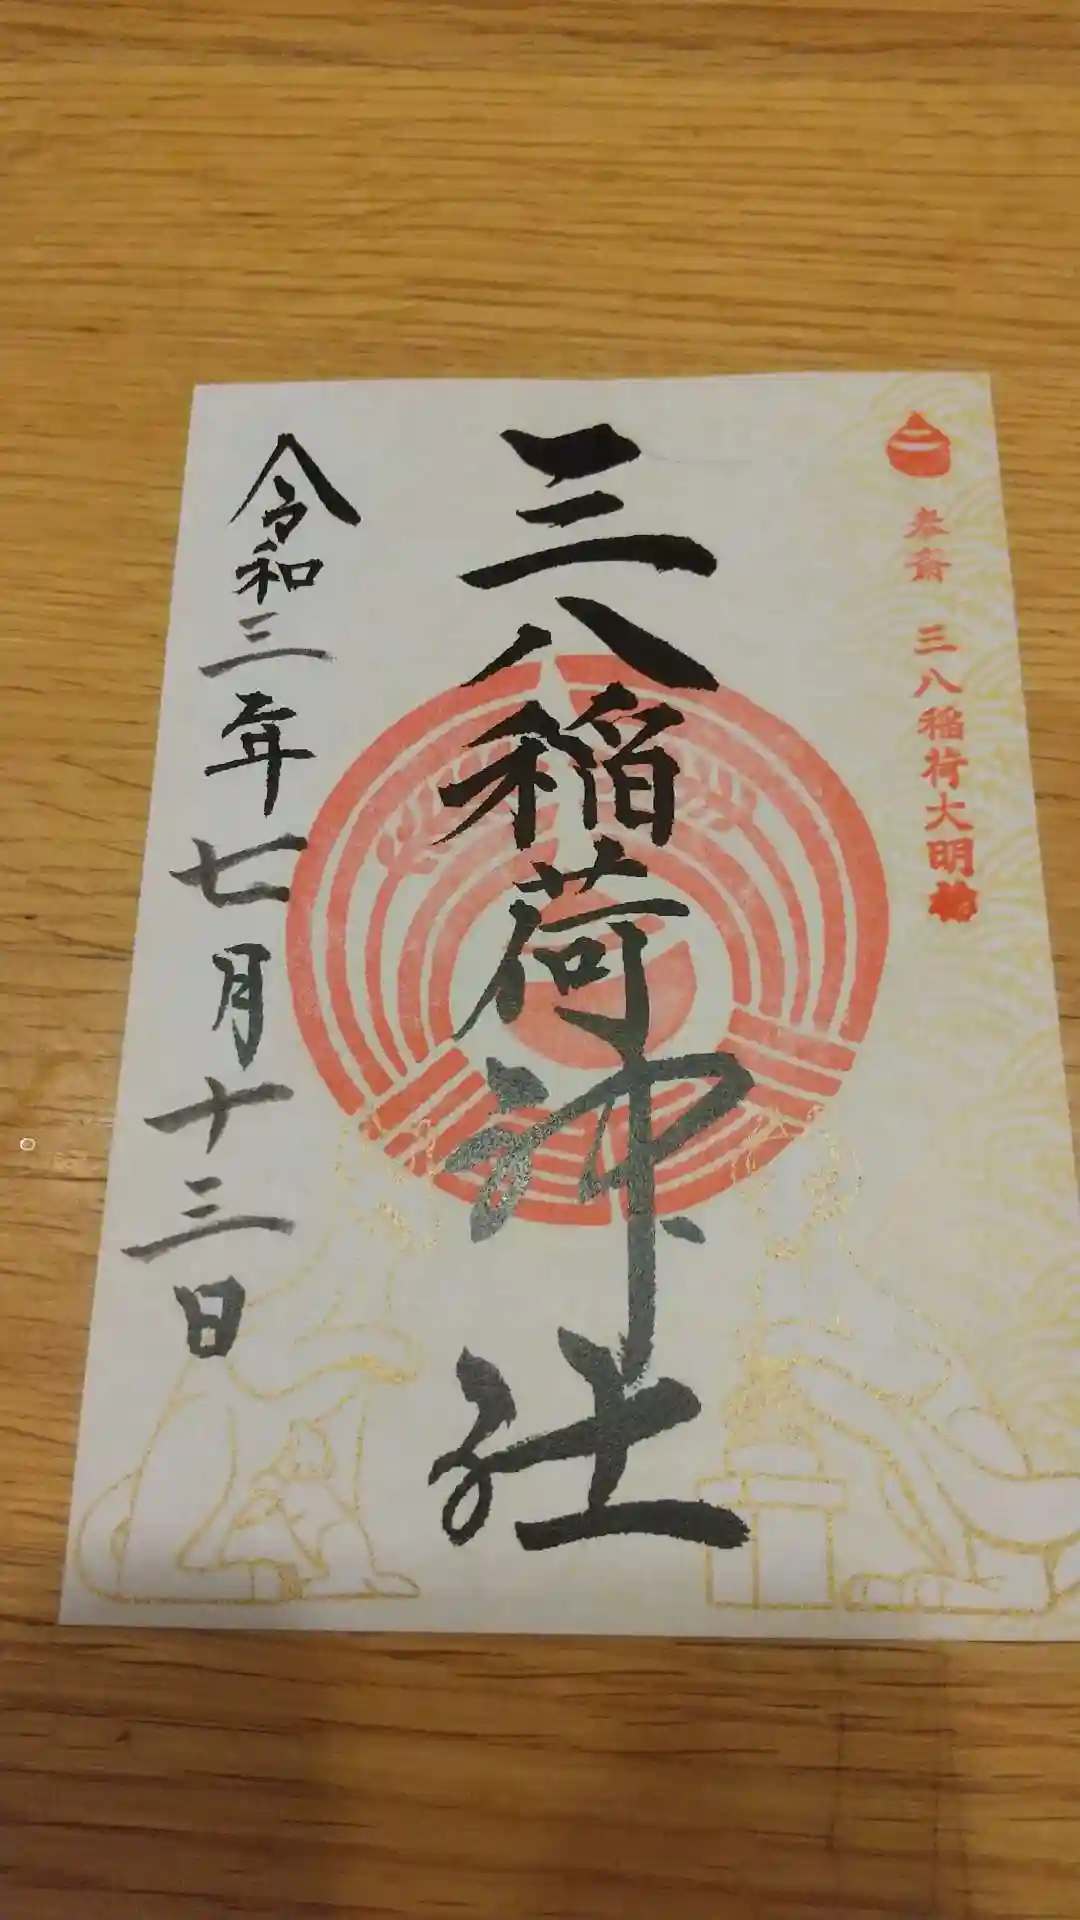 奉斎 三八稲荷大明神
三八稲荷神社
令和三年七月十三日